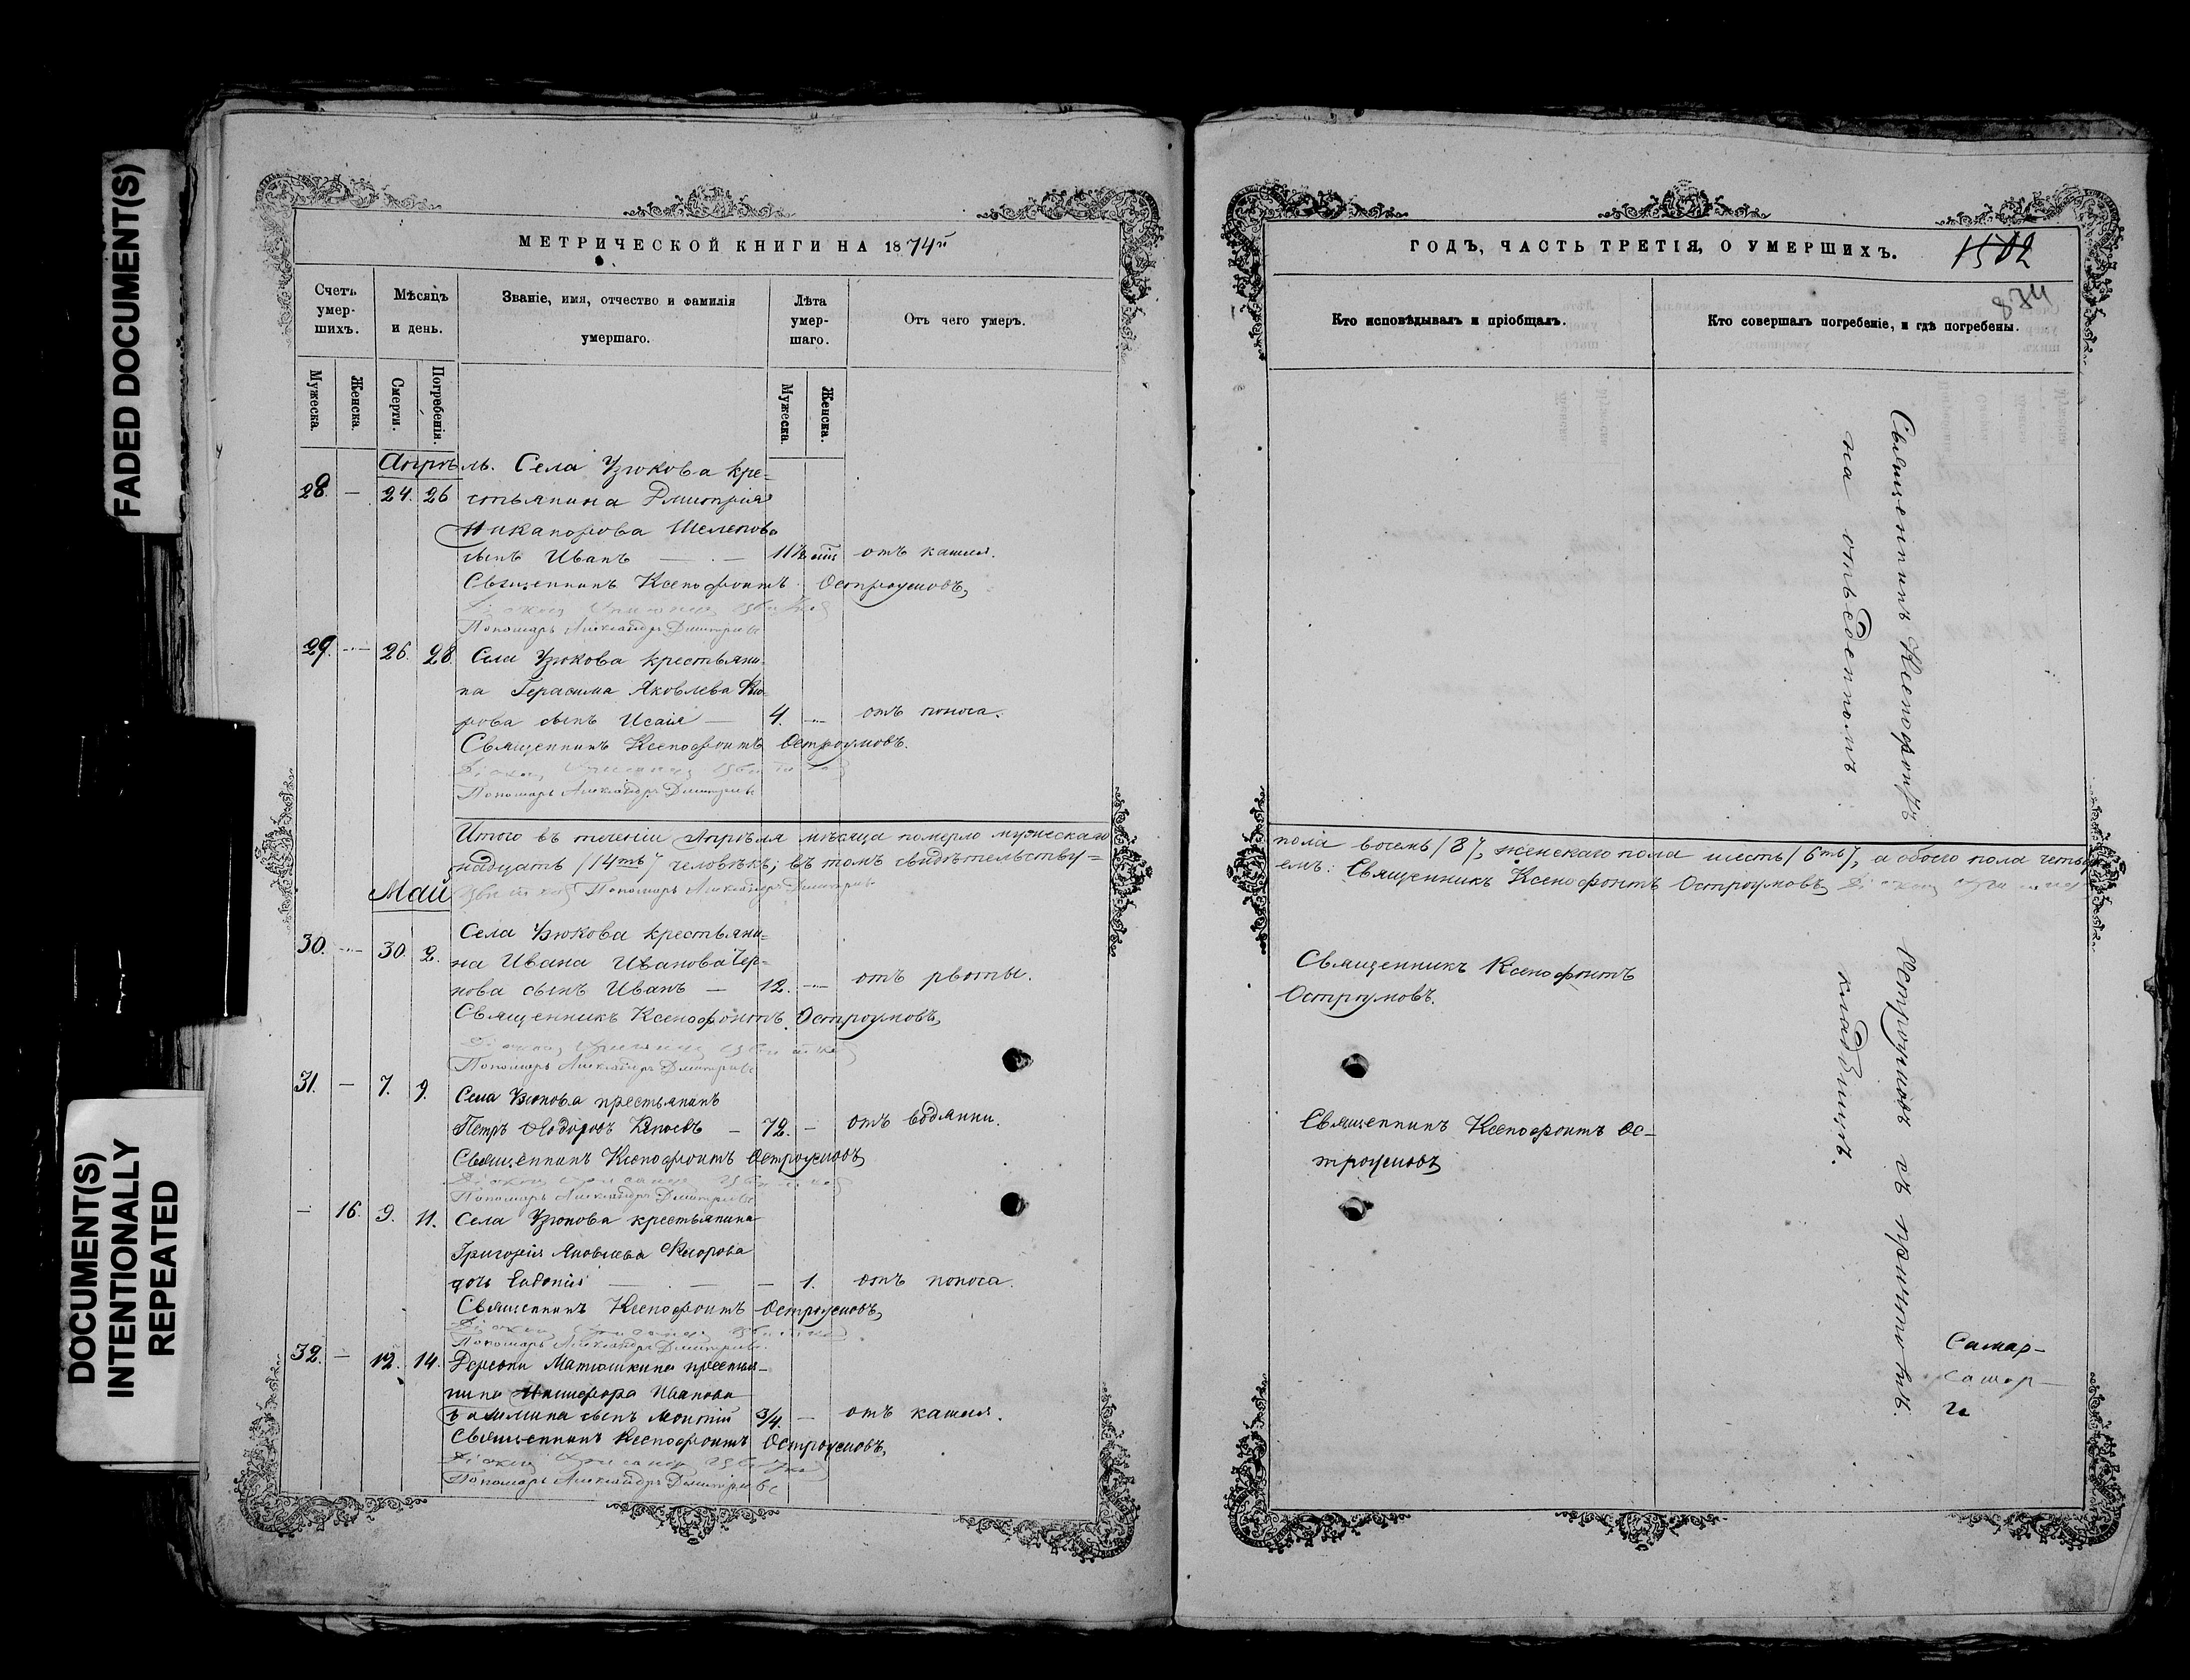 FADED DOCUMENT(S)
DOCUMENT(S)
INTENTIONALLY
REPEATED
МЕТРИЧЕСКОЙ КНИГИ НА 1874й
Счетъ умер-шихъ.
Мѣсяцъ и день.
Званіе, имя, отчество и фамилія умершаго.
Лѣта умер-шаго.
Отъ чего умеръ.
Мужеска.
Женска.
Смерти.
Погребенія.
Мужеска.
Женска.
Апрѣль. Села Узюкова кре=
28. — 24. 26 стьянина Дмитрія
Никанорова Шелепова
сынъ Иванъ — — 11½ отъ кашля.
Священникъ Ксенофонтъ Остроумовъ
Пономарь Александръ Дмитріевъ
29. — 26. 28. Села Узюкова крестьяни-
на Герасима Яковлева
сынъ Исаія — 4. — отъ поноса.
Священникъ Ксенофонтъ Остроумовъ.
Пономарь Александръ Дмитріевъ
Итого въ теченіи Апрѣля мѣсяца померло мужескаго
надцать /14ть/ человѣкъ; въ томъ свидѣтельству=
Пономарь Александръ Дмитріевъ
Май
Села Узюкова крестьяни=
30. — 30. 2. на Ивана Иванова Чер=
нова сынъ Иванъ — 12. — отъ рвоты.
Священникъ Ксенофонтъ Остроумовъ
Пономарь Александръ Дмитріевъ
31. — 7. 9. Села Узюкова крестьянинъ
Петръ Ѳедоровъ — 72. — отъ водянки.
Священникъ Ксенофонтъ Остроумовъ
Пономарь Александръ Дмитріевъ
— 16. 9. 11. Села Узюкова крестьянина
Григорія Яковлева
дочь Евдокія — — — 1. отъ поноса.
Священникъ Ксенофонтъ Остроумовъ
Пономарь Александръ Дмитріевъ
32. — 12. 14. Деревни Матюшкина крестья-
нина Никифора Иванова
сынъ 3/4. — отъ кашля.
Священникъ Ксенофонтъ Остроумовъ
Пономарь Александръ Дмитріевъ
ГОДЪ, ЧАСТЬ ТРЕТІЯ, О УМЕРШИХЪ.
1502
874
Кто исповѣдывалъ и пріобщалъ.
Кто совершалъ погребеніе, и гдѣ погребены.
Священникъ Ксенофонтъ Остроумовъ съ причтомъ
на отведенномъ кладбищѣ.
пола восемь /8/, женскаго пола шесть /6ть/, а обоего пола четыр
емъ: Священникъ Ксенофонтъ Остроумовъ
Священникъ Ксенофонтъ
Остроумовъ.
Священникъ Ксенофонтъ Ос-
троумовъ
Самар-